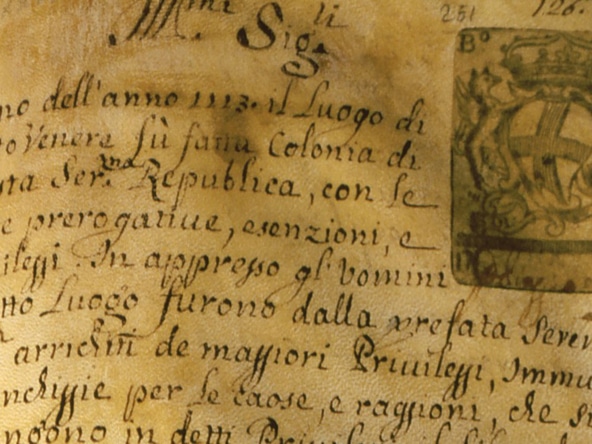 Ill.mi
Sig.li
251
126.
B°
no dell'anno 1113. il Luogo di
o Venere fù fatta Colonia di
sta Ser.ma Republica, con le
e prerogatiue, esenzioni, e
ileggi. In appresso gl'vomini
tto Luogo furono dalla prefata Seren
arrichiti de maggiori Priuileggi, Immu
nchiggie per le caose, e raggioni, che si
ngono in detti